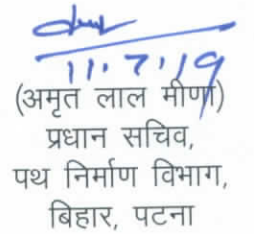 11.7.19
(अमृत लाल मीणा)
प्रधान सचिव,
पथ निर्माण विभाग,
बिहार, पटना